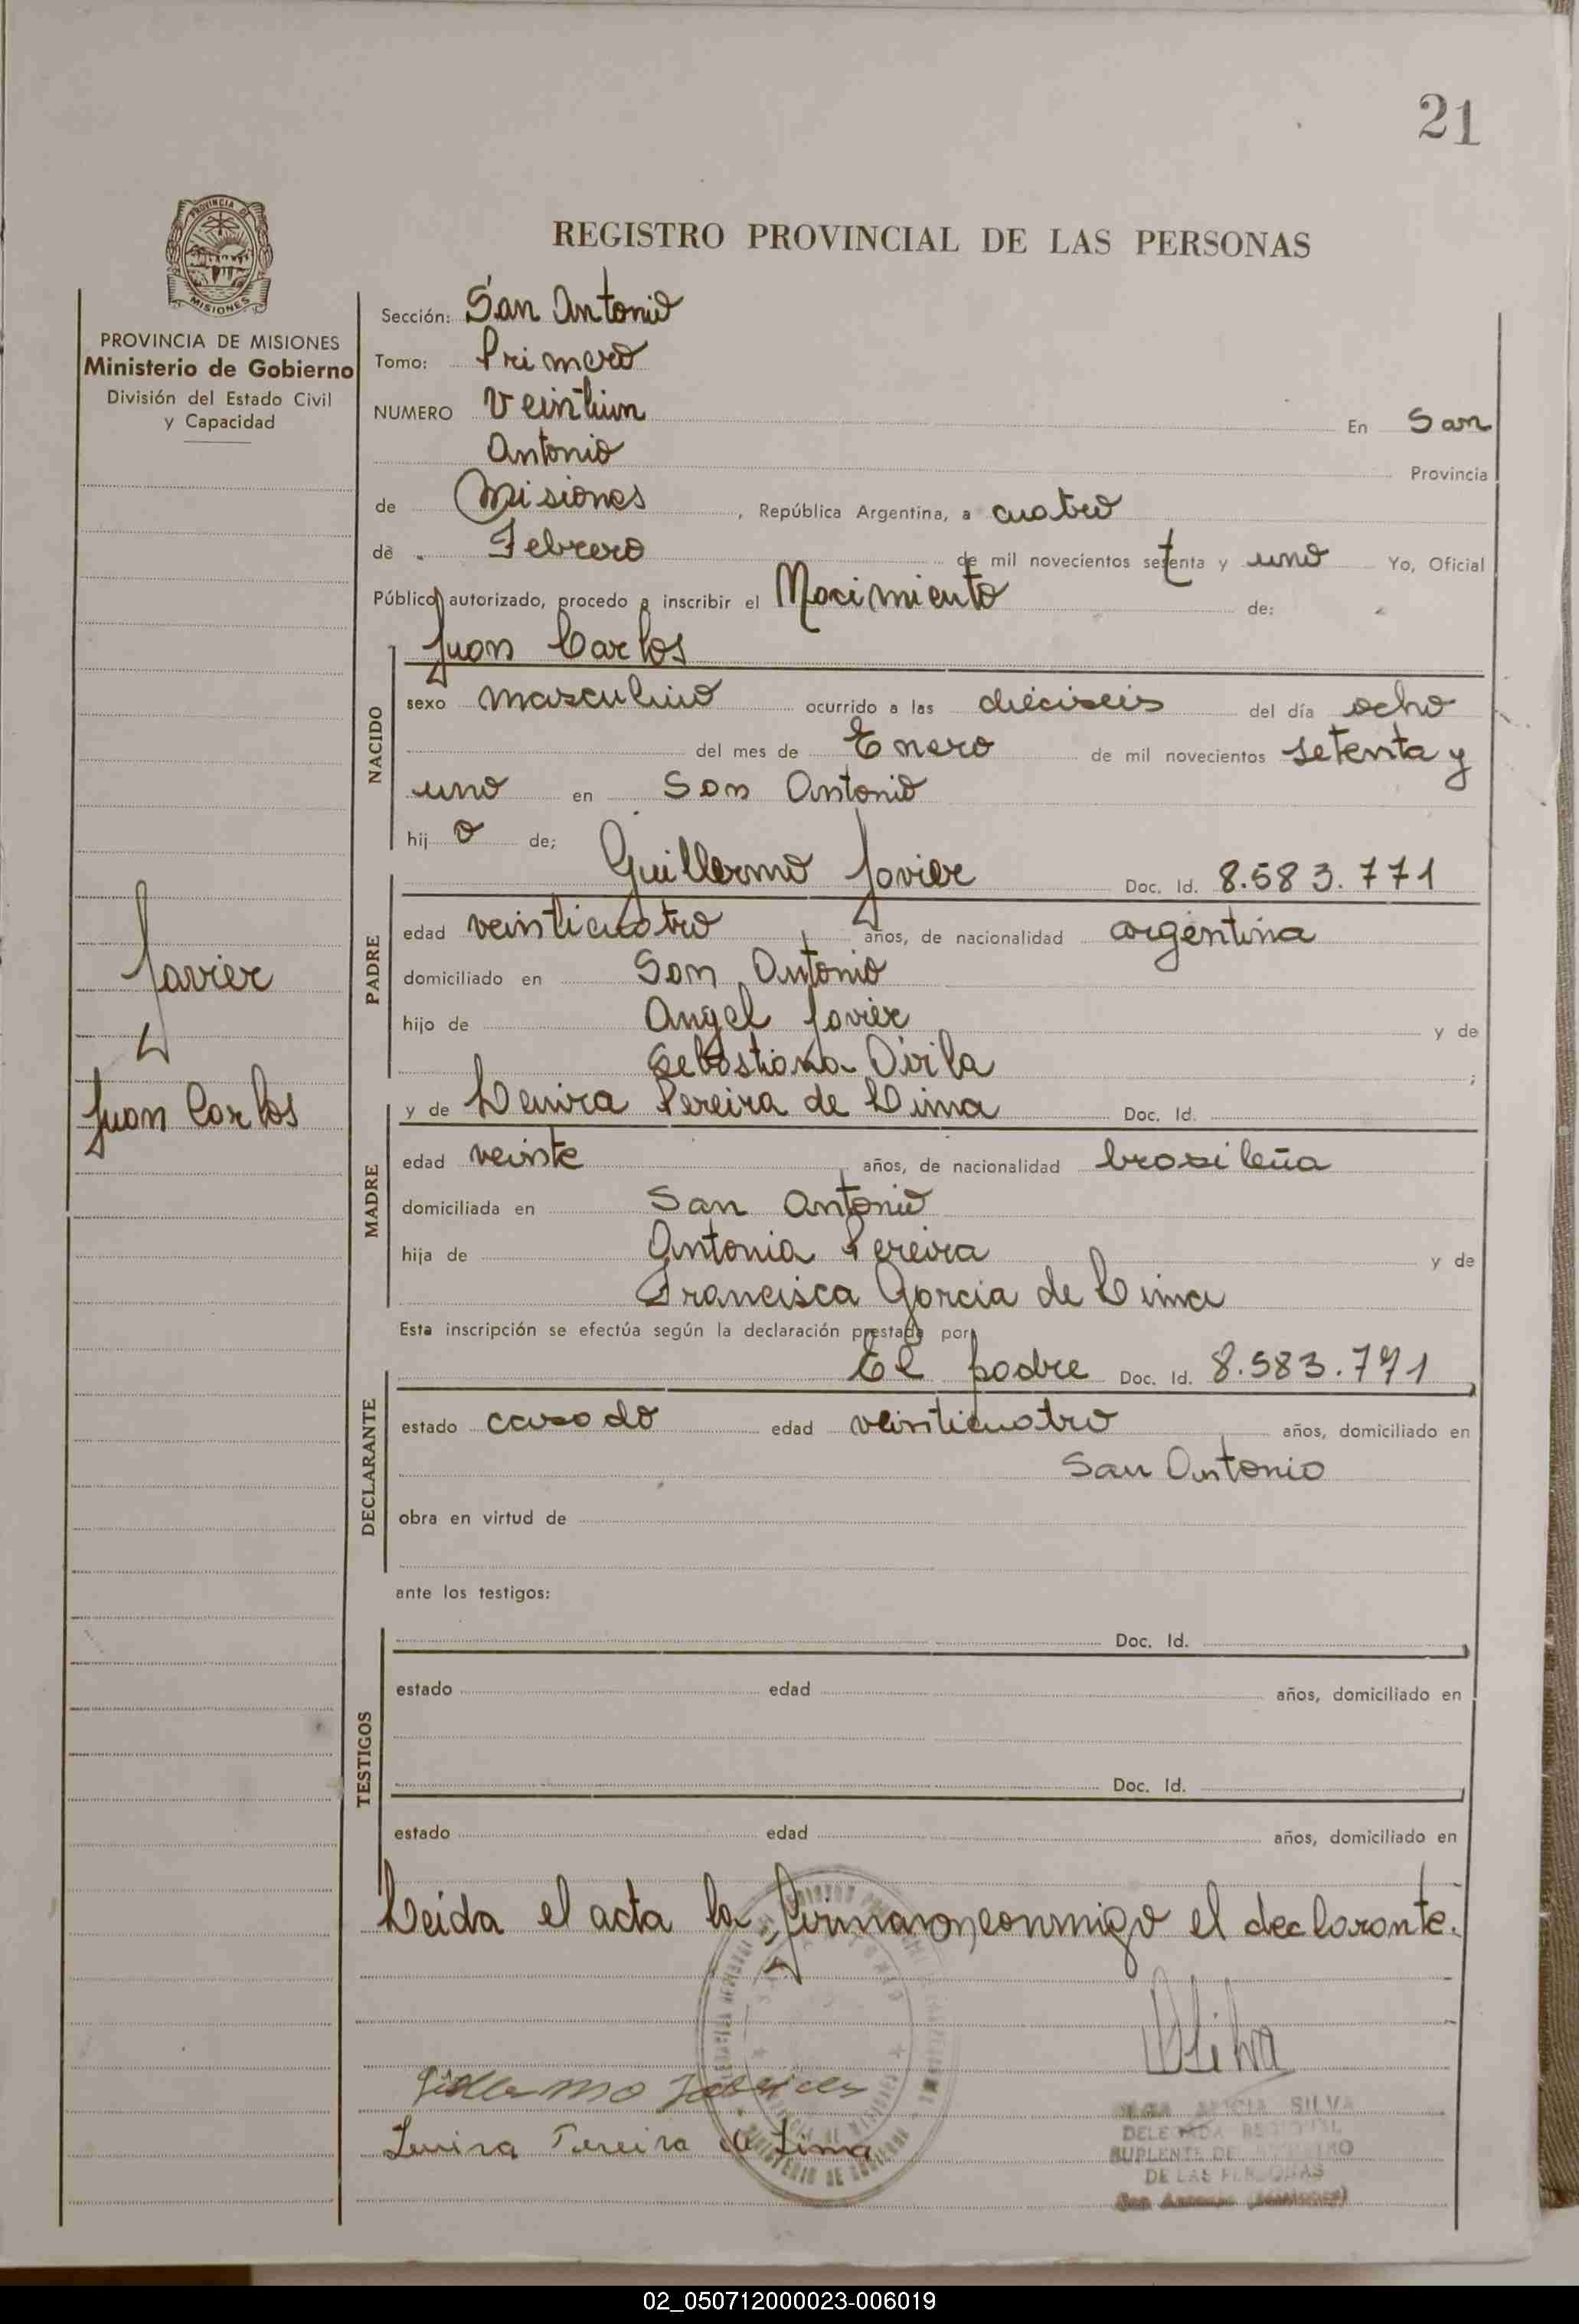 21
REGISTRO PROVINCIAL DE LAS PERSONAS
PROVINCIA DE
MISIONES
PROVINCIA DE MISIONES
Ministerio de Gobierno
División del Estado Civil
y Capacidad
Javier
Juan Carlos
Sección: San Antonio
Tomo: Primero
NUMERO Veintiun En San
Antonio Provincia
de Misiones, República Argentina, a cuatro
de Febrero de mil novecientos setenta y uno Yo, Oficial
Público autorizado, procedo a inscribir el Nacimiento de:
NACIDO
Juan Carlos
sexo masculino ocurrido a las dieciseis del día ocho
del mes de Enero de mil novecientos setenta y
uno en San Antonio
hijo de;
PADRE
Guillermo Javier Doc. Id. 8.583.771
edad veinticuatro años, de nacionalidad argentina
domiciliado en San Antonio
hijo de Angel Javier y de
Sebastiana Dívila;
MADRE
y de Lenira Pereira de Lima Doc. Id.
edad veinte años, de nacionalidad brasileña
domiciliada en San Antonio
hija de Antonia Pereira y de
Francisca Garcia de Lima
Esta inscripción se efectúa según la declaración prestada por
DECLARANTE
El padre Doc. Id. 8.583.771
estado casado edad veinticuatro años, domiciliado en
San Antonio
obra en virtud de
ante los testigos:
TESTIGOS
Doc. Id.
estado edad años, domiciliado en
Doc. Id.
estado edad años, domiciliado en
Leida el acta la firmaron conmigo el declarante.
Lenira Pereira de Lima
OLGA ALICIA SILVA
DELEGADA REGIONAL
SUPLENTE DEL REGISTRO
DE LAS PERSONAS
San Antonio (Misiones)
02_050712000023-006019